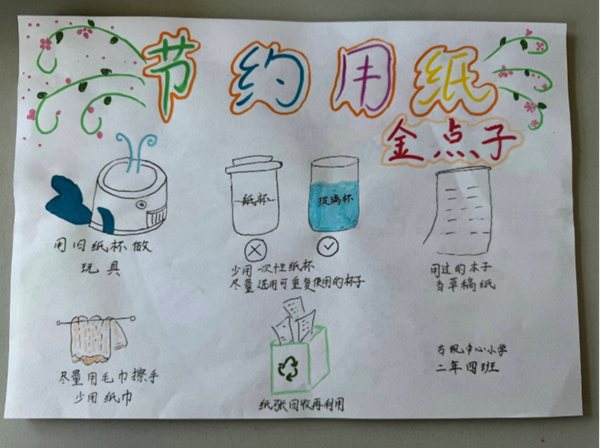 节约用纸
金点子
纸杯
玻璃杯
用旧纸杯做
玩具
少用一次性纸杯
尽量选用可重复使用的杯子
用过的本子
当草稿纸
尽量用毛巾擦手
少用纸巾
纸张回收再利用
中心小学
二年四班